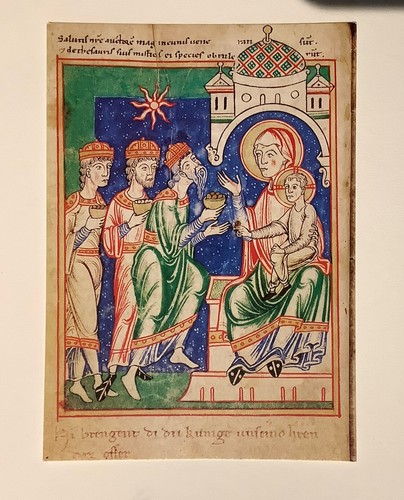 Salutis nr̄e auctorē magi in cunis vene ran sūt.
⁊ de thesauris suis misticas ei species obtule rūt.
Hi brengent di dri kunige unserm herren
ir opfer